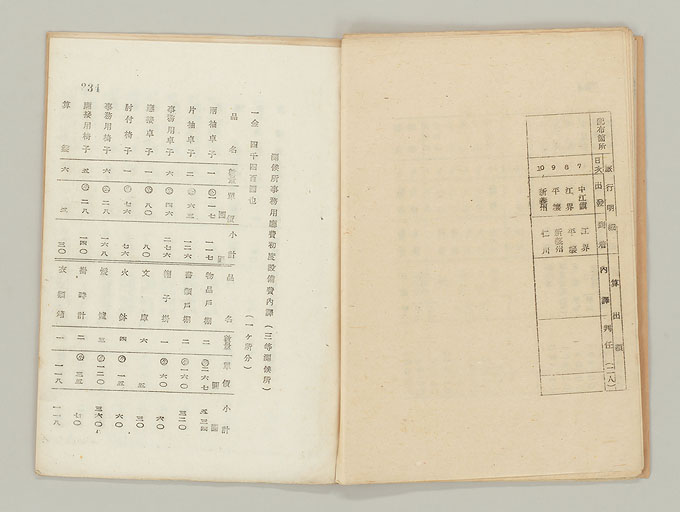 配布箇所
旅行明細
算出額
日次
出發
到着
內譯
判任(二人)
7 中江鎭 江界
8 江界 平壤
9 平壤 新義州
10 新義州 仁川
測候所事務用廳費初度設備費內譯(三等測候所)
(一ケ所分)
一金 四千四百圓也
品名 數量 單價 小計 品名 數量 單價 小計
兩袖卓子 一 一一七 一一七 物品戶棚 二
片袖卓子 二 六三 一二六 書類戶棚 二 一六〇 三二〇
事務用卓子 六 四六 二七六 帽子掛 一 六〇 六〇
應接卓子 一 八〇 八〇 文庫 六 五 三〇
肘付椅子 一 七六 七六 火鉢 四 一五 六〇
事務用椅子 六 二八 一六八
應接用椅子 五 二八 一四〇 掛時計 二 三五 七〇
算盤 六 五 三〇 一 一一八 一一八
234